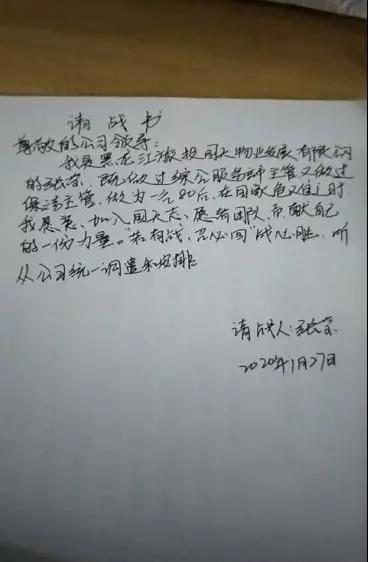 请战书
尊敬的公司领导:
我是黑龙江省投国大物业发展有限公司
的张营,既做过综合服务部主管又做过
保洁主管,做为一名80后,在国家危难之时
我愿意、加入团队,贡献自己
的一份力量。"若有战,召必回"战必胜,听
从公司统一调遣和安排
请战人:张营
2020年1月27日